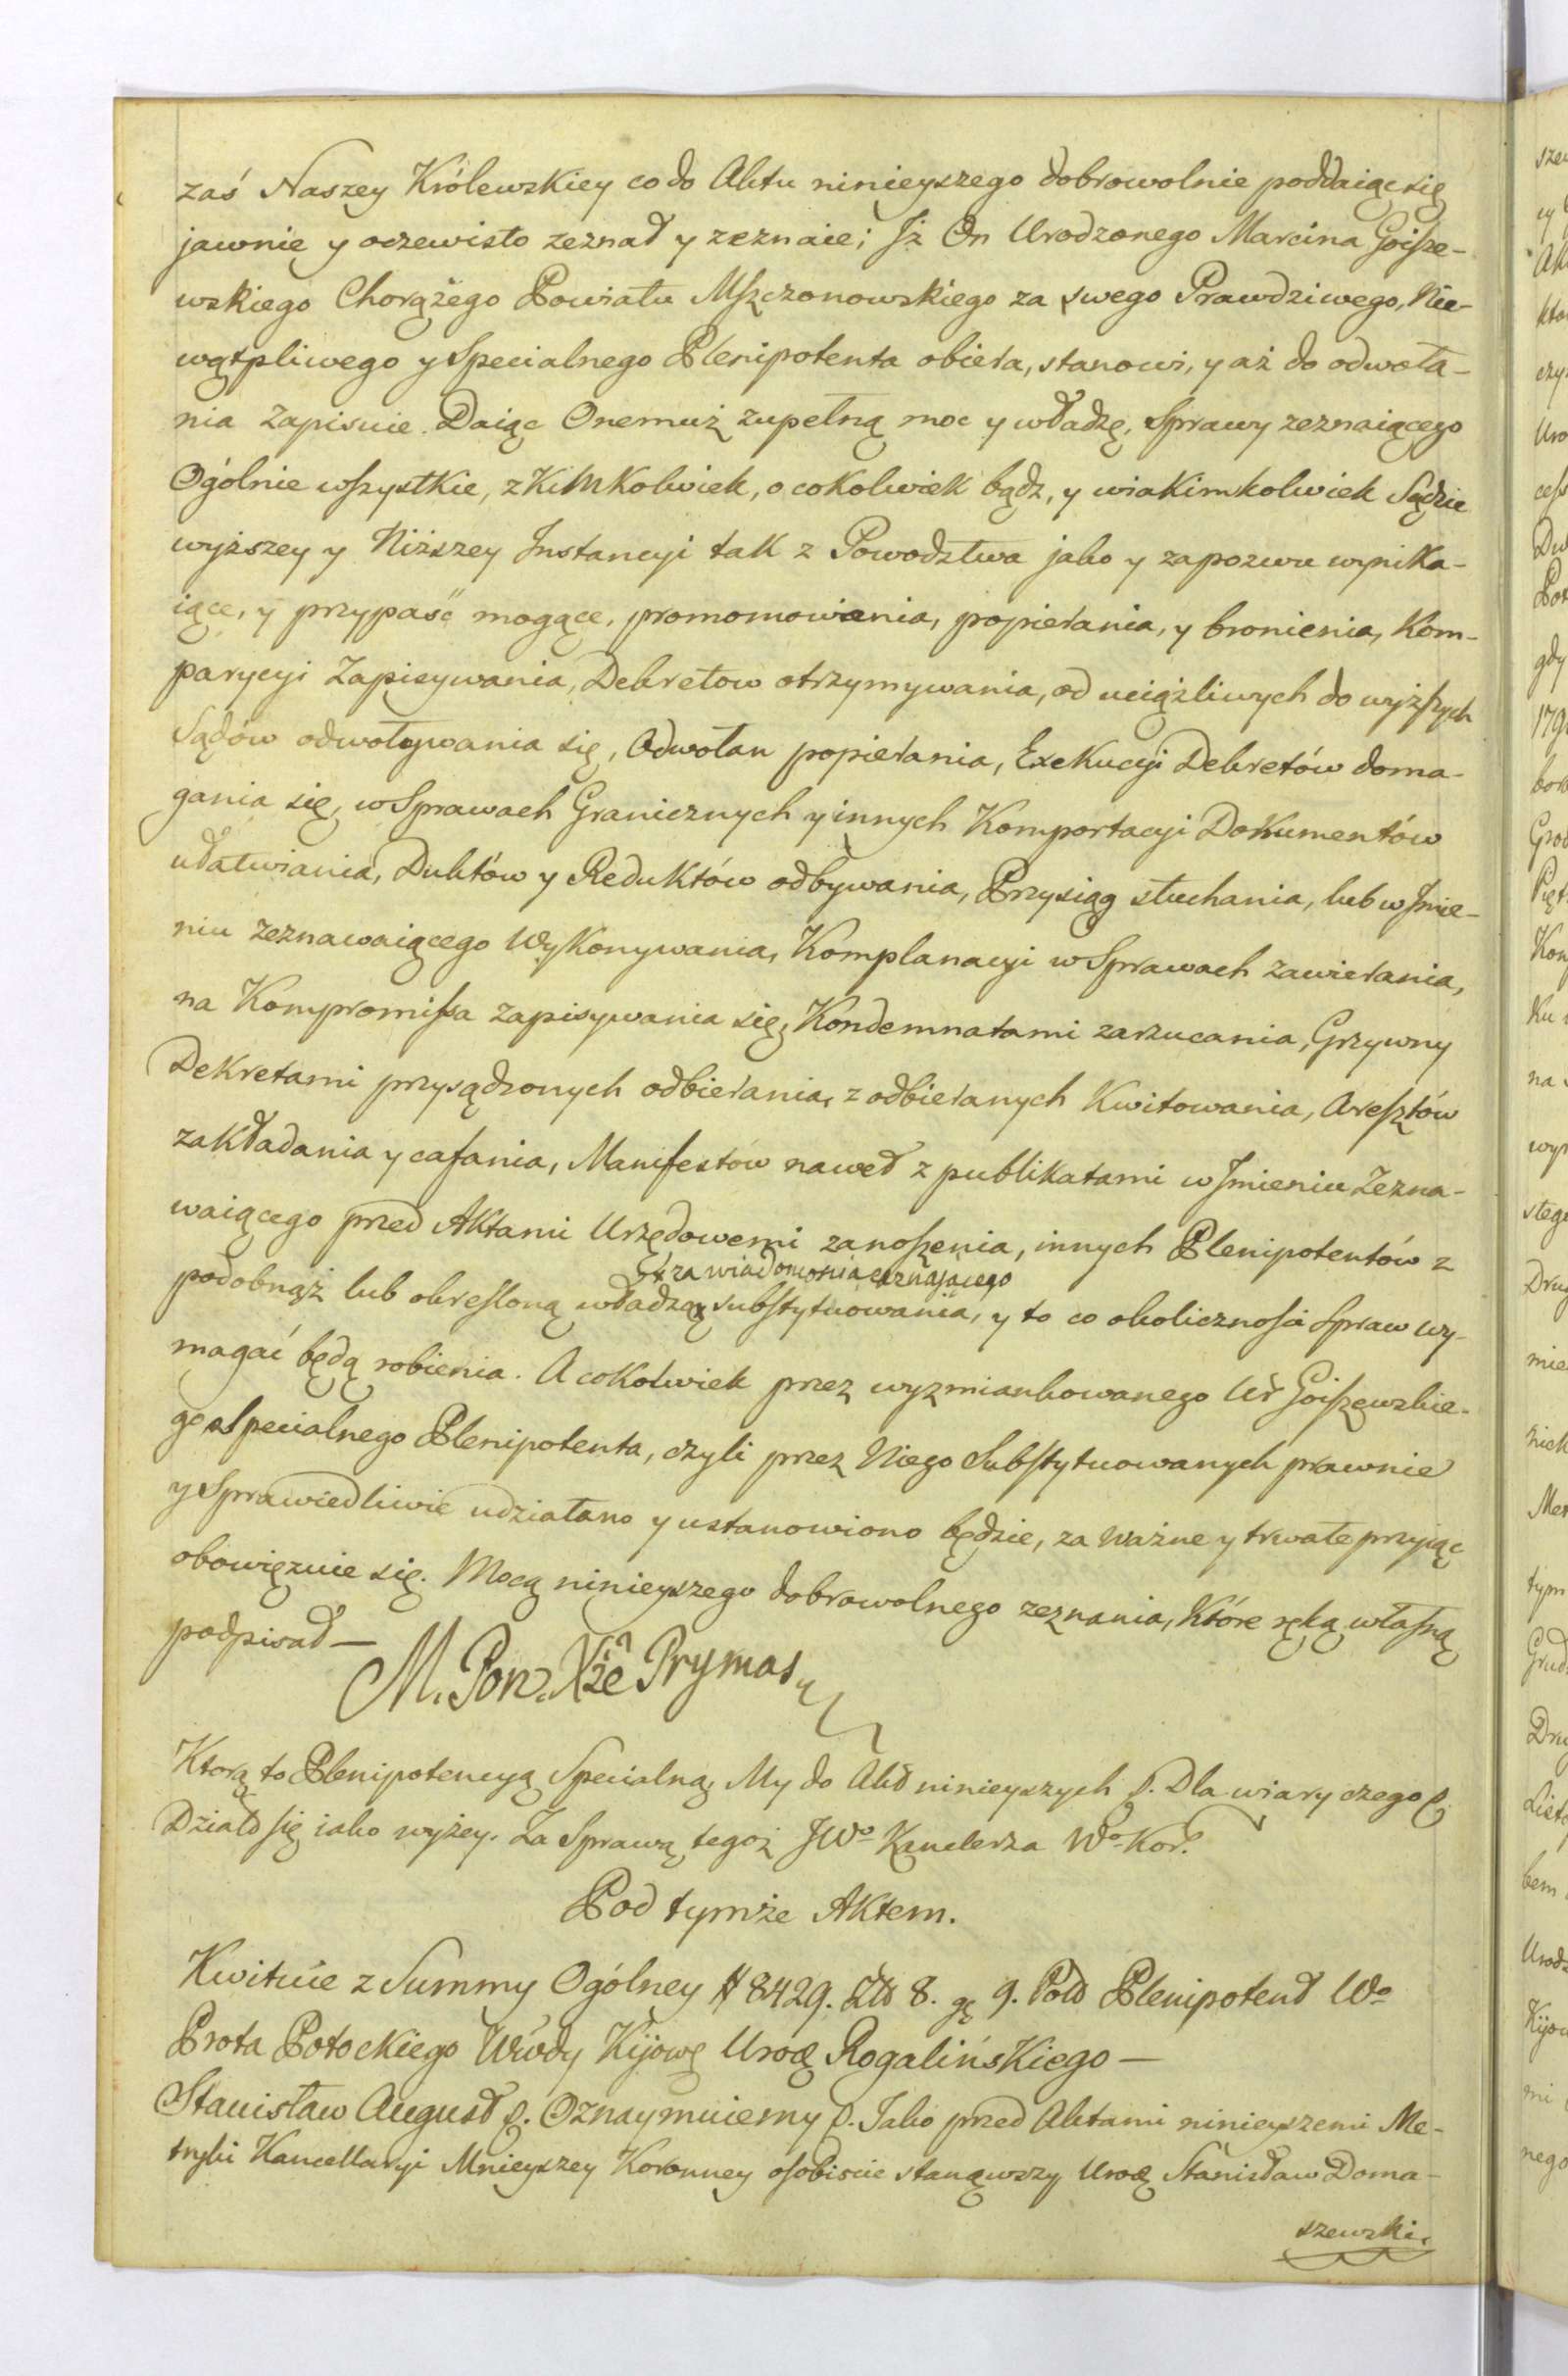 zaś Naszey Królewskiey co do Aktu ninieyszego dobrowolnie poddaiąc się
jawnie y oczewisto zeznał y zeznaie; Jż On Urodzonego Marcina Goisze-
wskiego Chorążego Powiatu Mszczonowskiego za swego Prawdziwego, Nie-
wątpliwego y Specialnego Plenipotenta obiera, stanowi, y aż do odwoła-
nia Zapisuie. Daiąc Onemuż zupełną moc y władzę, Sprawy zeznaiącego
Ogólnie wszystkie, z Kimkolwiek, o cokolwiek bądz, y wiakimkolwiek Sądzie
wyższey y Niższey Jnstancyi tak z Powodztwa jako y zapozwu wynika-
iące, y przypaść mogące, promomowania, popierania, y bronienia, Kom-
parycyi Zapisywania, Dekretow otrzymywania, od uciążliwych do wyższych
Sądów odwoływania się, Odwołan popierania, Exekucyi Dekretów doma-
gania się, w Sprawach Granicznych y innych Komportacyi Dokumentów
ułatwiania, Duktów y Reduktów odbywania, Przysiąg słuchania, lub w Jmie-
niu zeznawaiącego Wykonywania, Komplanacyi w Sprawach zawierania,
na Kompromissa zapisywania się, Kondemnatami zarzucania, Grzywny
Dekretami przysądzonych odbierania, z odbieranych Kwitowania, Aresztów
zakładania y cafania, Manifestow naweł z publikatami w Jmieniu Zezna-
waiącego przed Aktami Urzędowemi zanoszenia, innych Plenipotentów z
Et za wiadomością zeznającego
podobnąż lub okresloną władzą substytuowania, y to co okolicznosci Spraw wy-
magać będą robienia. A cokolwiek przez wyzmiankowanego Ur Goiszewskie-
go Specialnego Plenipotenta, czyli przez Niego Substytuowanych prawnie
y Sprawiedliwie udziałano y ustanowiono będzie, za ważne y trwałe przyiąc
obowięzuie się. Mocą ninieyszego dobrowolnego zeznania, Które ręką własną
podpisał —
M. Pon. Xże Prymas
Ktorą to Plenipotencyą Specialną, My do Akt ninieyszych p. Dla wiary czego p.
Dział się iako wyżey. Za Sprawą tegoż JWo Kanclerza Wo Kor.
Pod tymże Aktem.
Kwituie z Summy Ogólney # 8429. Złł 8. gę 9. Pold Plenipotenł Wo
Prota Potockiego Wwdy Kijowę Urod Rogalińskiego —
Stanisław Augusł p. Oznaymuiemy p. Jako przed Aktami ninieyszemi Me-
tryki Kancellaryi Mnieyszey Koronney osobiscie stanąwszy Urod Stanisław Doma-
szewski.